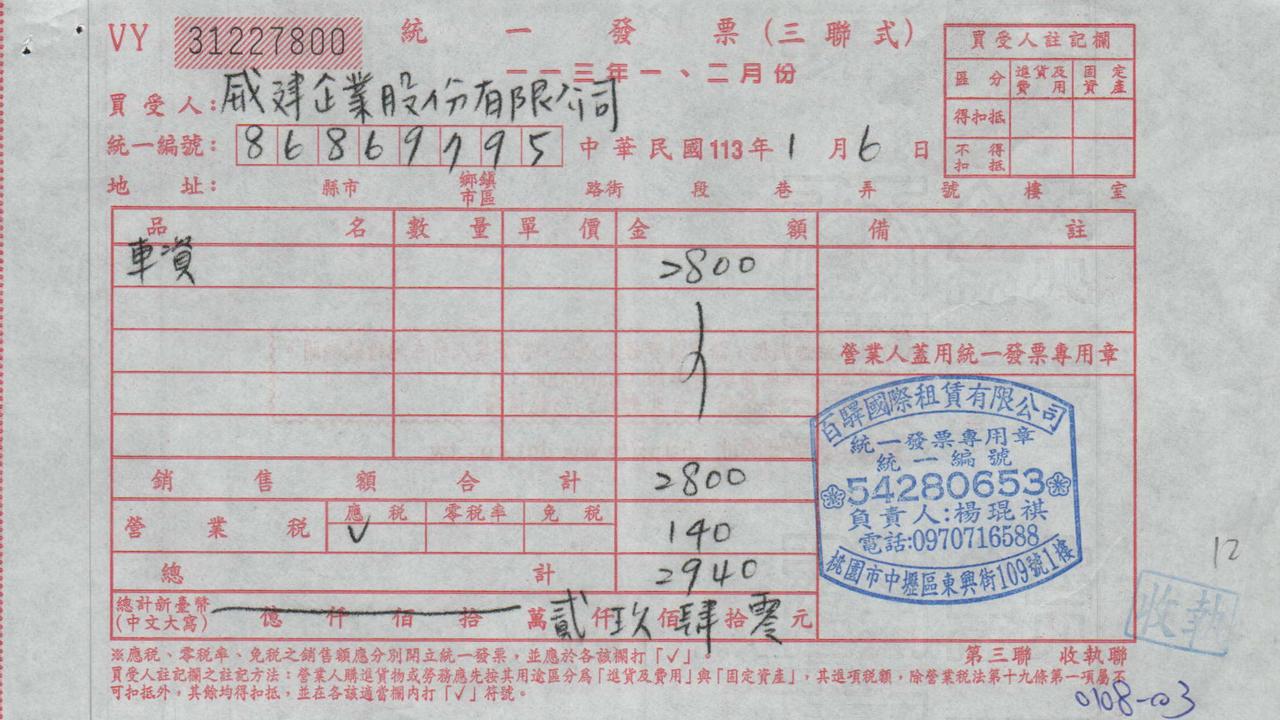 VY 31227800 統一發票(三聯式)
一一三年一、二月份
買受人註記欄
區分 進貨及費用 固定資產
得扣抵
不得扣抵
買受人:威建企業股份有限公司
統一編號:86869795 中華民國113年1月6日
地址: 縣市 鄉鎮市區 路街 段 巷 弄 號 樓 室
品名 數量 單價 金額 備註
車資 2800
營業人蓋用統一發票專用章
銷售額合計 2800
營業稅 應稅 零稅率 免稅
✓ 140
總計 2940
總計新臺幣(中文大寫) 億仟佰拾萬貳仟玖佰肆拾零元
百驛國際租賃有限公司
統一發票專用章
統一編號
54280653
負責人:楊琨祺
電話:0970716588
桃園市中壢區東興街109號1樓
12
收執
※應稅、零稅率、免稅之銷售額應分別開立統一發票,並應於各該欄打「✓」。
第三聯 收執聯
買受人註記欄之註記方法:營業人購進貨物或勞務應先按其用途區分為「進貨及費用」與「固定資產」,其進項稅額,除營業稅法第十九條第一項屬不
可扣抵外,其餘均得扣抵,並在各該適當欄內打「✓」符號。
0108-03